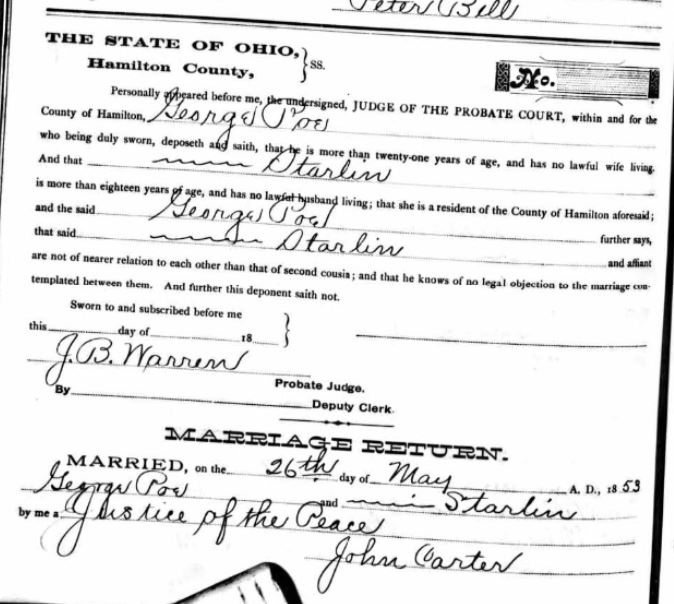 Peter Bell
THE STATE OF OHIO,
Hamilton County, } SS.
No.
Personally appeared before me, the undersigned, JUDGE OF THE PROBATE COURT, within and for the
County of Hamilton, George Poe
who being duly sworn, deposeth and saith, that he is more than twenty-one years of age, and has no lawful wife living.
And that Starlin
is more than eighteen years of age, and has no lawful husband living; that she is a resident of the County of Hamilton aforesaid;
and the said George Poe further says,
that said Starlin and affiant
are not of nearer relation to each other than that of second cousin; and that he knows of no legal objection to the marriage con-
templated between them. And further this deponent saith not.
Sworn to and subscribed before me
this day of 18 }
J. B. Warren
Probate Judge.
By Deputy Clerk.
MARRIAGE RETURN.
MARRIED, on the 26th day of May A. D., 1853
George Poe and Starlin
by me a Justice of the Peace
John Carter